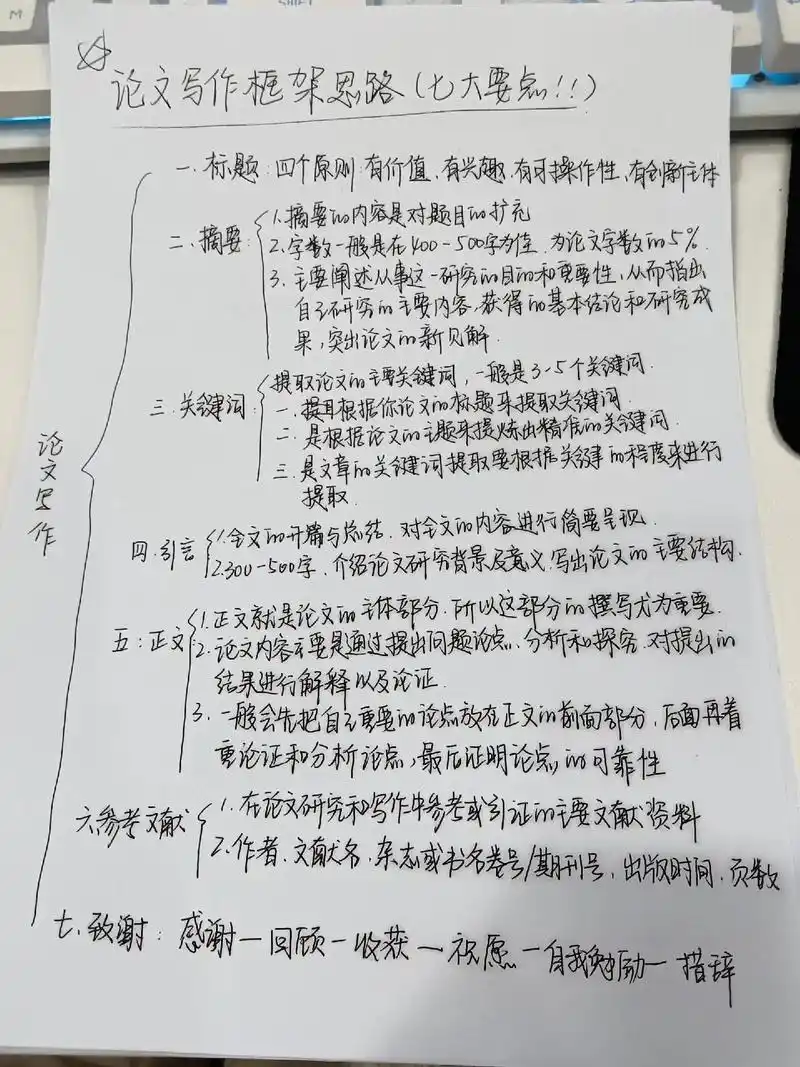 论文写作框架思路(七大要点!!)
论文写作
一. 标题: 四个原则 有价值, 有兴趣, 有可操作性, 有创新主体
二. 摘要:
1. 摘要的内容是对题目的扩充
2. 字数一般是在400-500字为佳. 为论文字数的5%.
3. 主要阐述从事这一研究的目的和重要性, 从而指出
自己研究的主要内容, 获得的基本结论和研究成
果, 突出论文的新见解.
三. 关键词:
提取论文的主要关键词, 一般是3-5个关键词.
一. 提取根据你论文的标题来提取关键词.
二. 是根据论文的主题来提炼出精准的关键词.
三. 是文章的关键词提取要根据关键的程度来进行
提取.
四. 引言
1. 全文的开篇与总结. 对全文的内容进行简要呈现.
2. 300-500字. 介绍论文研究背景及意义. 写出论文的主要结构.
五: 正文
1. 正文就是论文的主体部分. 所以这部分的撰写尤为重要.
2. 论文内容主要是通过提出问题论点、分析和探究. 对提出的
结果进行解释以及论证.
3. 一般会先把自己重要的论点放在正文的前面部分, 后面再着
重论证和分析论点, 最后证明论点的可靠性
六参考文献
1. 在论文研究和写作中参考或引证的主要文献资料
2. 作者. 文献名. 杂志或书名卷号/期刊号, 出版时间. 页数
七. 致谢: 感谢—回顾—收获—祝愿—自我勉励—措辞